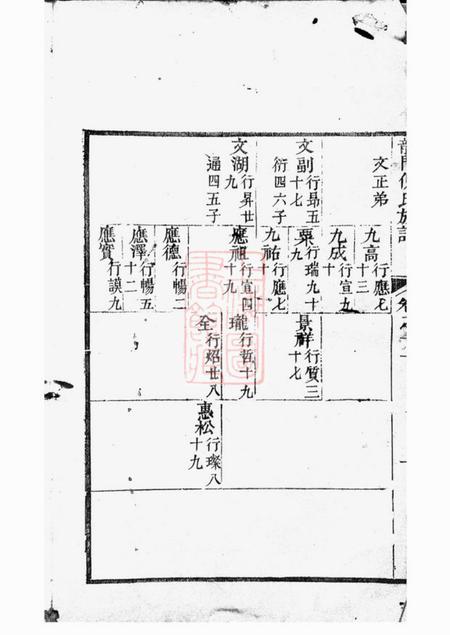 文正弟
文副 行昂五十七
衍四六子
文湖 行昇廿九
通四五子
九高 行應七十三
九成 行宣九十
粟 行瑞九十九
九祐 行應七十
應祖 行宣四十九
應德 行暢二
應澤 行暢五十二
應實 行謨九
景祥 行質三十七
瓏 行哲十九
全 行炤廿八
惠松 行璨八十九